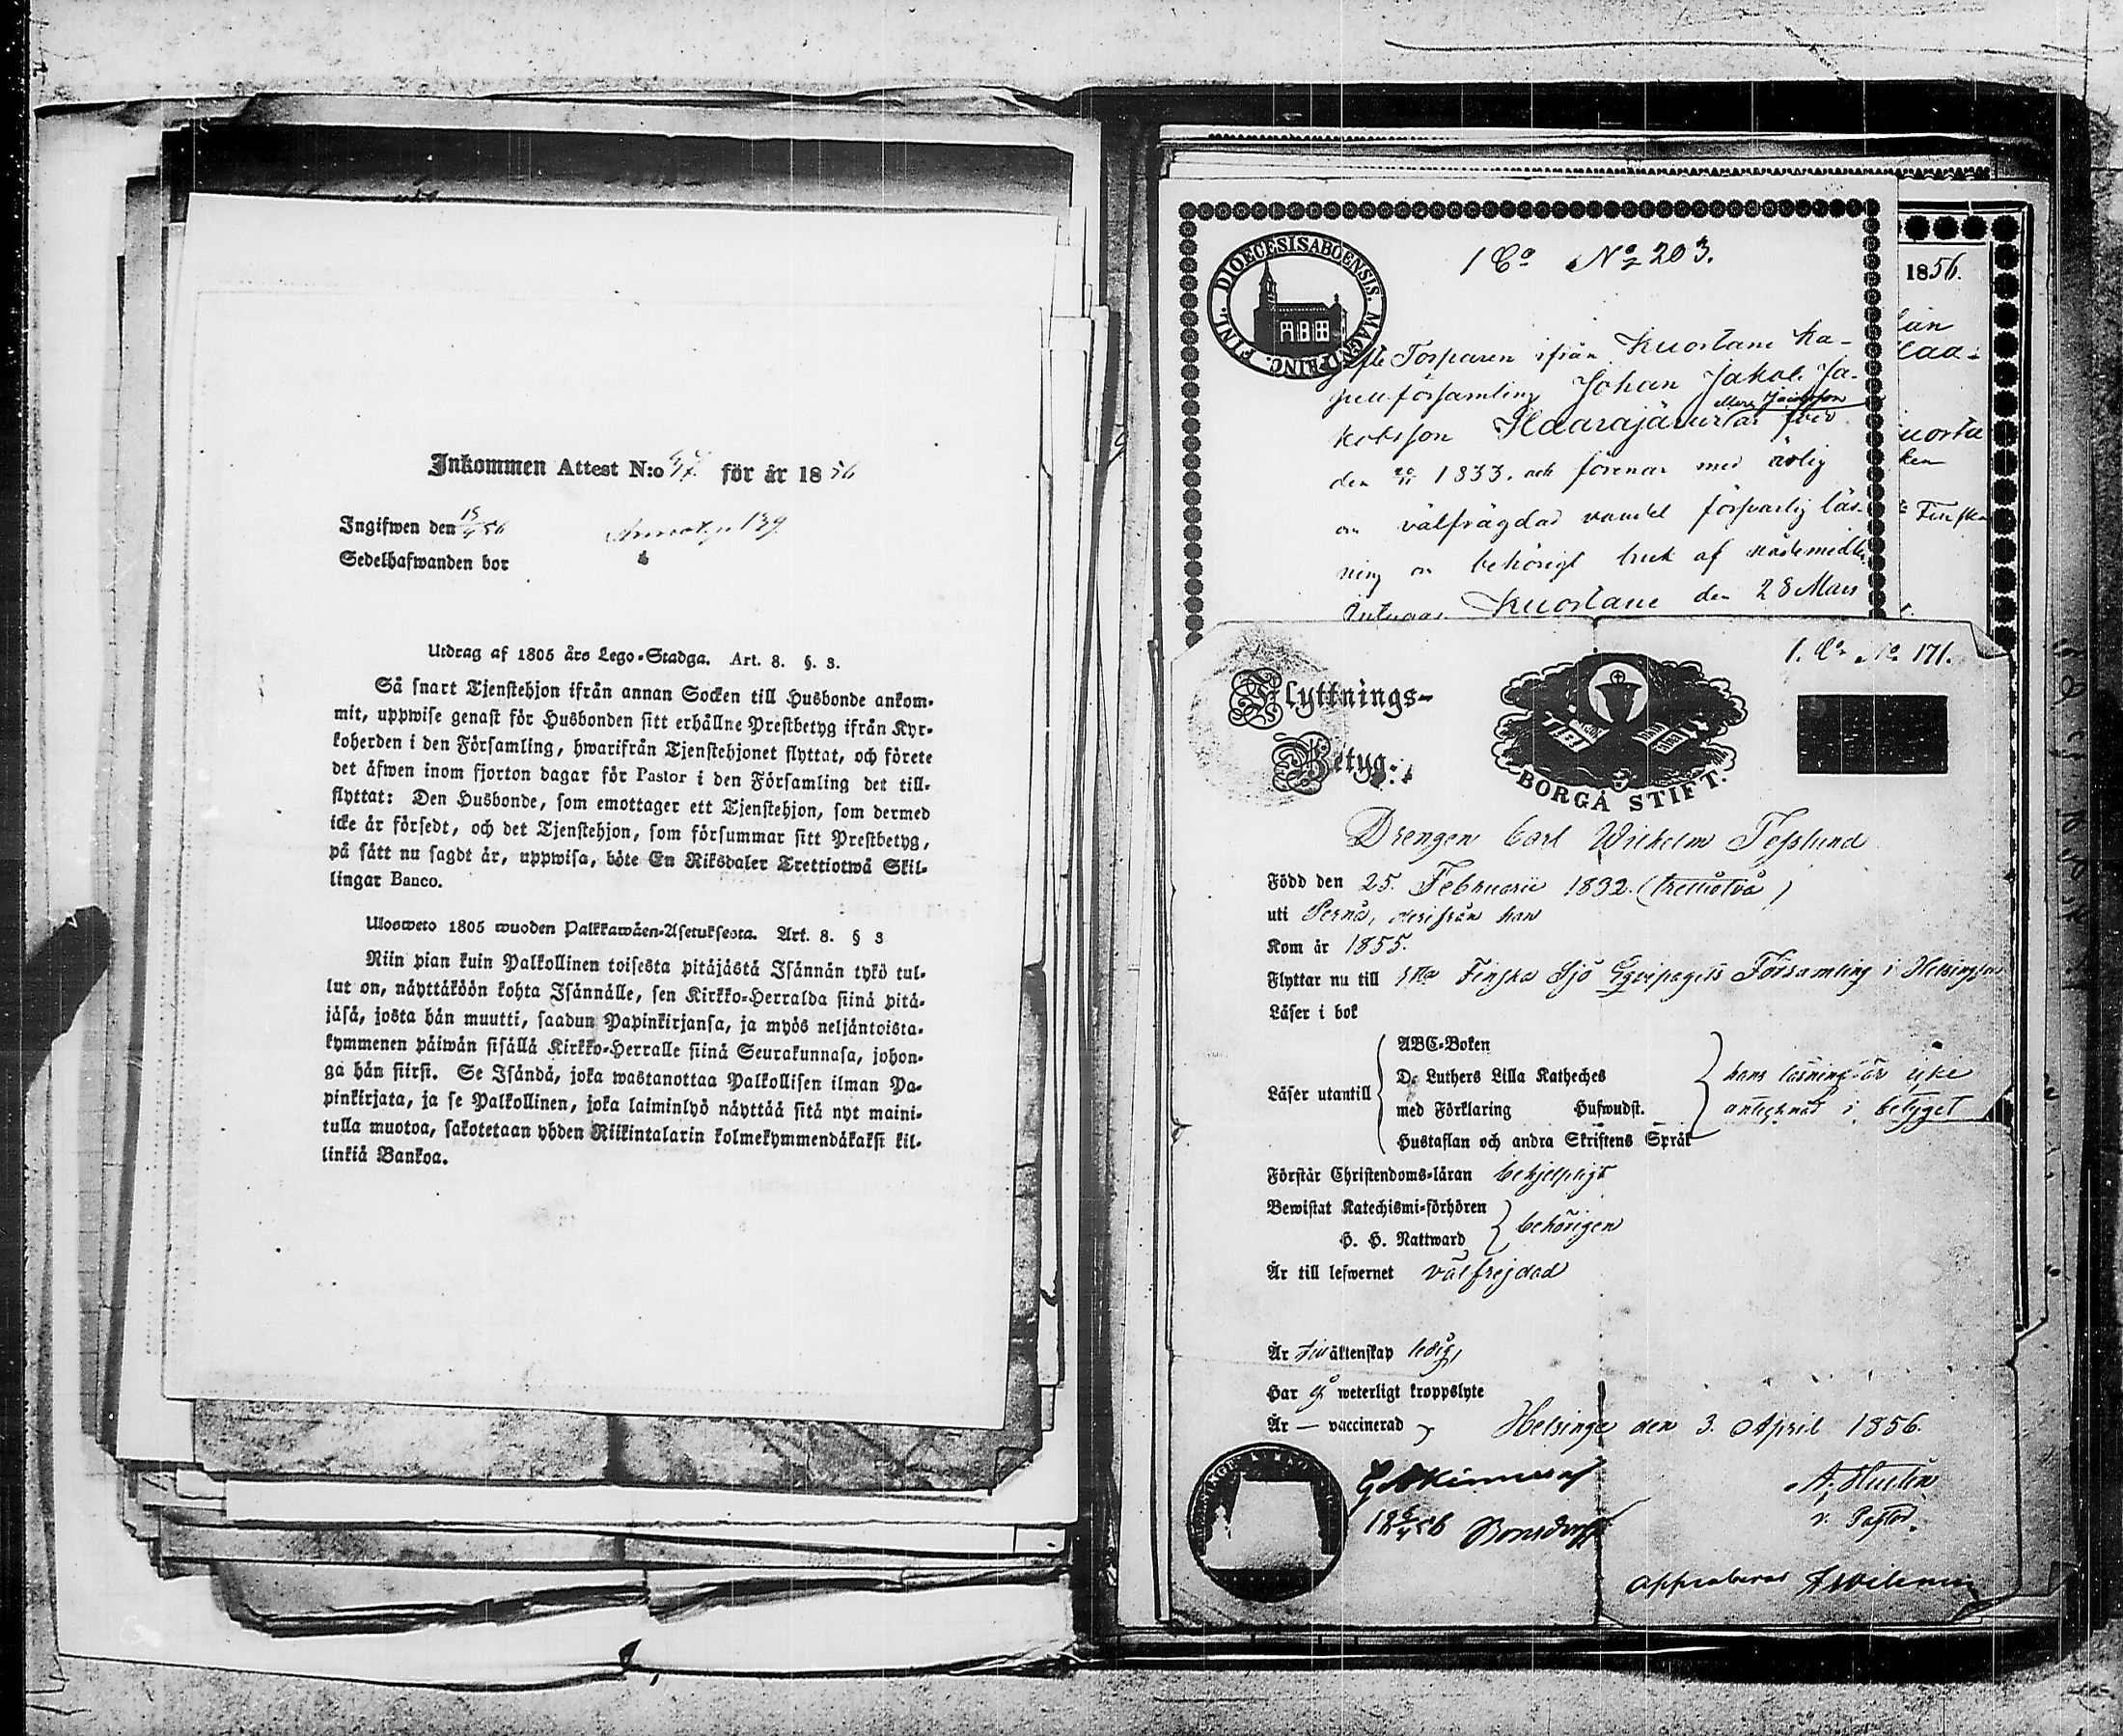 Inkommen Attest N:o för år 1856
Ingifwen den 15/4 56
Sedelhafwanden bor
Utdrag af 1805 års Lego-Stadga. Art. 8. §. 3.
Så snart Tjenstehjon ifrån annan Socken till Husbonde ankom-
mit, uppwise genast för Husbonden sitt erhållne Prestbetyg ifrån Kyr-
koherden i den Församling, hwarifrån Tjenstehjonet flyttat, och förete
det äfwen inom fjorton dagar för Pastor i den Församling det till-
flyttat: Den Husbonde, som emottager ett Tjenstehjon, som dermed
icke är försedt, och det Tjenstehjon, som försummar sitt Prestbetyg,
på sätt nu sagdt är, uppwisa, böte En Riksdaler Trettiotwå Skil-
lingar Banco.
Ulosweto 1805 wuoden Palkkawäen-Asetuksesta. Art. 8. § 3
Niin pian kuin Palkollinen toisesta pitäjästä Isännän tykö tul-
lut on, näyttäköön kohta Isännälle, sen Kirkko-Herralda siinä pitä-
jäsä, josta hän muutti, saadun Papinkirjansa, ja myös neljäntoista-
kymmenen päiwän sisällä Kirkko-Herralle siinä Seurakunnasa, johon-
ga hän siirsi. Se Isändä, joka wastanottaa Palkollisen ilman Pa-
pinkirjata, ja se Palkollinen, joka laiminlyö näyttää sitä nyt maini-
tulla muotoa, sakotetaan yhden Riikintalarin kolmekymmendäkaksi kil-
linkiä Bankoa.
DIOECESIS ABOENSIS. MAGNI PRINC. FINL.
1 Co No 203.
Torparen ifrån Kuortane Ka-
pellförsamling Johan Jakob Ja-
kobsson Haarajärvi
den 20/11 1833. och förenar med ärlig
och välfrägdad vandel försvarlig läs-
ning och behörigt bruk af nådemedlen
Kuortane den 28 Mars
1856.
Finska
1. Co No 171.
Flyttnings-
Betyg.
BORGÅ STIFT.
Drengen Carl Wilhelm Teslund
Född den 25. Februarii 1832. (trettiotvå)
uti Pernå, derifrån han
Kom år 1855.
Flyttar nu till Finska Sjö Eqvipagets Församling i Helsingfors
Läser i bok
Läser utantill
ABC-Boken
D. Luthers Lilla Katheches
med Förklaring Hufwudst.
Hustaflan och andra Skriftens Språk
hans läsning är icke
antecknad i betyget
Förstår Christendoms-läran behjelpligt
Bewistat Katechismi-förhören
H. H. Nattward
behörigen
Är till lefwernet välfrejdad
Är till äktenskap ledig,
Har ej weterligt kroppslyte
Är — vaccinerad
Helsinge den 3. April 1856.
v. Pastor.
Bonsdorff
approberas